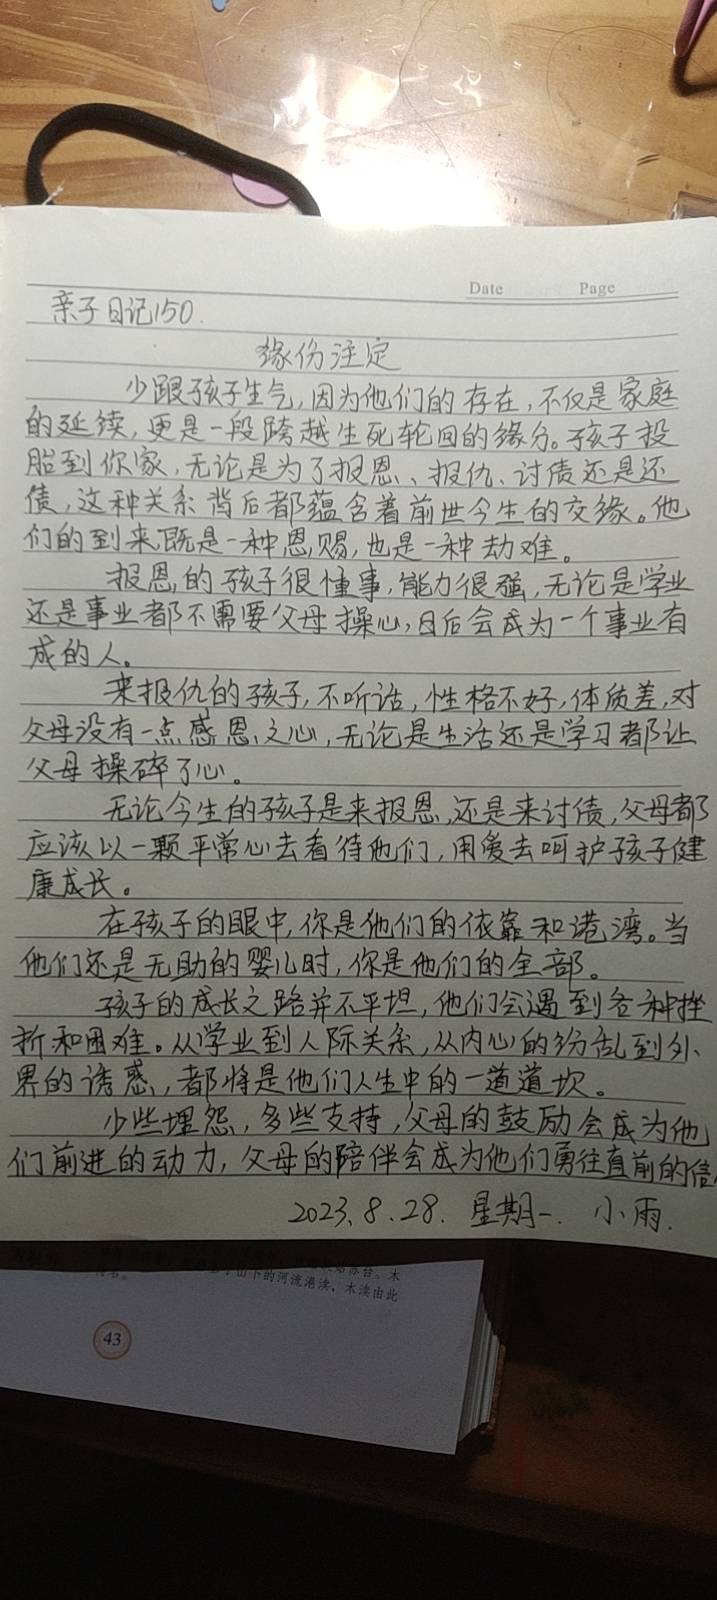 Date Page
亲子日记150.
缘份注定
少跟孩子生气,因为他们的存在,不仅是家庭
的延续,更是一段跨越生死轮回的缘分。孩子投
胎到你家,无论是为了报恩、报仇、讨债还是还
债,这种关系背后都蕴含着前世今生的交缘。他
们的到来既是一种恩赐,也是一种劫难。
报恩的孩子很懂事,能力很强,无论是学业
还是事业都不需要父母操心,日后会成为一个事业有
成的人。
来报仇的孩子,不听话,性格不好,体质差,对
父母没有一点感恩之心,无论是生活还是学习都让
父母操碎了心。
无论今生的孩子是来报恩,还是来讨债,父母都
应该以一颗平常心去看待他们,用爱去呵护孩子健
康成长。
在孩子的眼中,你是他们的依靠和港湾。当
他们还是无助的婴儿时,你是他们的全部。
孩子的成长之路并不平坦,他们会遇到各种挫
折和困难。从学业到人际关系,从内心的纷乱到外
界的诱惑,都将是他们人生中的一道道坎。
少些埋怨,多些支持,父母的鼓励会成为他
们前进的动力,父母的陪伴会成为他们勇往直前的信
2023.8.28.星期一.小雨.
山下的河流港渎,木渎由此
43